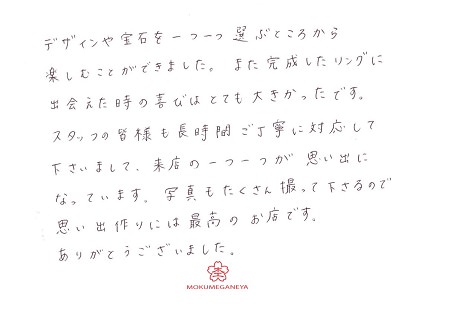 デザインや宝石を一つ一つ選ぶところから
楽しむことができました。また完成したリングに
出会えた時の喜びはとても大きかったです。
スタッフの皆様も長時間ご丁寧に対応して
下さいまして、来店の一つ一つが思い出に
なっています。写真もたくさん撮って下さるので
思い出作りには最高のお店です。
ありがとうございました。
MOKUMEGANEYA